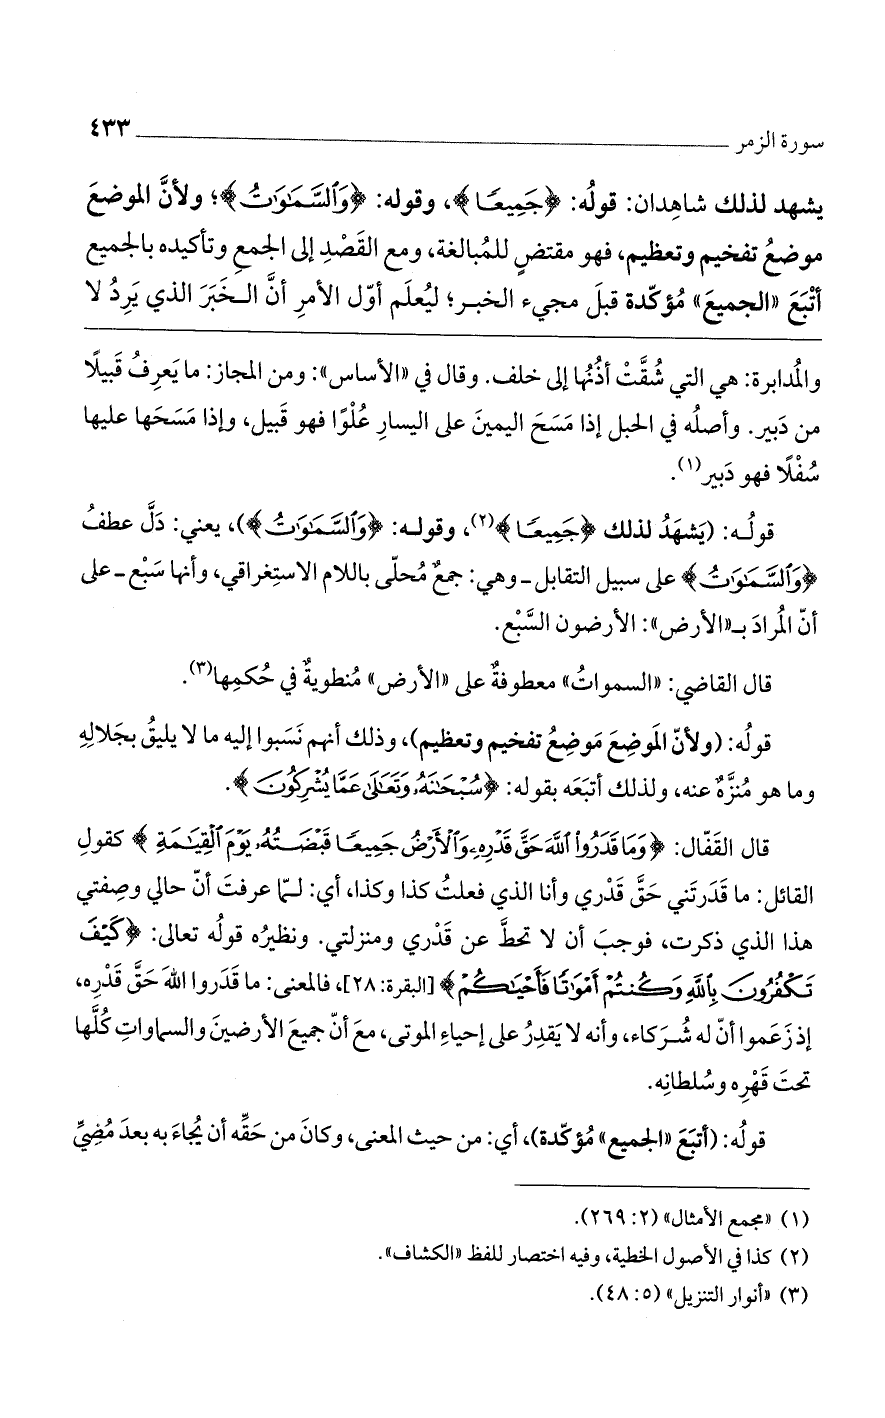 سورة الزمر ٤٣٣
يشهد لذلك شاهِدان: قولُه: ﴿جَمِيعًا﴾، وقوله: ﴿وَٱلسَّمَٰوَٰتُ﴾؛ ولأنَّ الموضعَ
موضعُ تفخيم وتعظيم، فهو مقتضٍ للمُبالغة، ومع القَصْدِ إلى الجمعِ وتأكيده بالجميع
أتْبَعَ «الجميعَ» مُؤكّدة قبلَ مجيء الخبر؛ ليُعلَم أوّل الأمرِ أنَّ الخَبَرَ الذي يَرِدُ لا
والمُدابرة: هي التي شُقَّتْ أذُنُها إلى خلف. وقال في «الأساس»: ومن المجاز: ما يَعرِفُ قَبيلًا
من دَبير. وأصلُه في الحبل إذا مَسَحَ اليمينَ على اليسارِ عُلْوًا فهو قَبيل، وإذا مَسَحَها عليها
سُفْلًا فهو دَبير(١).
قولُه: (يَشهَدُ لذلك ﴿جَمِيعًا﴾(٢)، وقوله: ﴿وَٱلسَّمَٰوَٰتُ﴾)، يعني: دَلَّ عطفُ
﴿وَٱلسَّمَٰوَٰتُ﴾ على سبيل التقابل -وهي: جمعٌ مُحلّى باللام الاستِغراقي، وأنها سَبْع- على
أنّ المُرادَ بـ«الأرض»: الأرضون السَّبْع.
قال القاضي: «السمواتُ» معطوفةٌ على «الأرض» مُنطويةٌ في حُكمِها(٣).
قولُه: (ولأنّ المَوضِعَ مَوضِعُ تفخيم وتعظيم)، وذلك أنهم نَسَبوا إليه ما لا يليقُ بجَلالِهِ
وما هو مُنزَّهٌ عنه، ولذلك أتبَعَه بقوله: ﴿سُبْحَٰنَهُۥ وَتَعَٰلَىٰ عَمَّا يُشْرِكُونَ﴾.
قال القَفّال: ﴿وَمَا قَدَرُوا۟ ٱللَّهَ حَقَّ قَدْرِهِۦ وَٱلْأَرْضُ جَمِيعًا قَبْضَتُهُۥ يَوْمَ ٱلْقِيَٰمَةِ﴾ كقولِ
القائل: ما قَدَرتَني حَقَّ قَدْري وأنا الذي فعلتُ كذا وكذا، أي: لمّا عرفتَ أنّ حالي وصِفتي
هذا الذي ذكرت، فوجبَ أن لا تحطَّ عن قَدْري ومنزلتي. ونظيرُه قولُه تعالى: ﴿كَيْفَ
تَكْفُرُونَ بِٱللَّهِ وَكُنتُمْ أَمْوَٰتًا فَأَحْيَٰكُمْ﴾ [البقرة: ٢٨]، فالمعنى: ما قَدَروا اللهَ حَقَّ قَدْرِه،
إذ زَعَموا أنّ له شُركاء، وأنه لا يَقدِرُ على إحياءِ الموتى، معَ أنّ جميعَ الأرضينَ والسماواتِ كُلَّها
تحتَ قَهْرِه وسُلطانِه.
قولُه: (أتبَعَ «الجميع» مُؤكّدة)، أي: من حيث المعنى، وكانَ من حَقِّه أن يُجاءَ به بعدَ مُضِيِّ
(١) «مجمع الأمثال» (٢: ٢٦٩).
(٢) كذا في الأصول الخطية، وفيه اختصار للفظ «الكشاف».
(٣) «أنوار التنزيل» (٥: ٤٨).